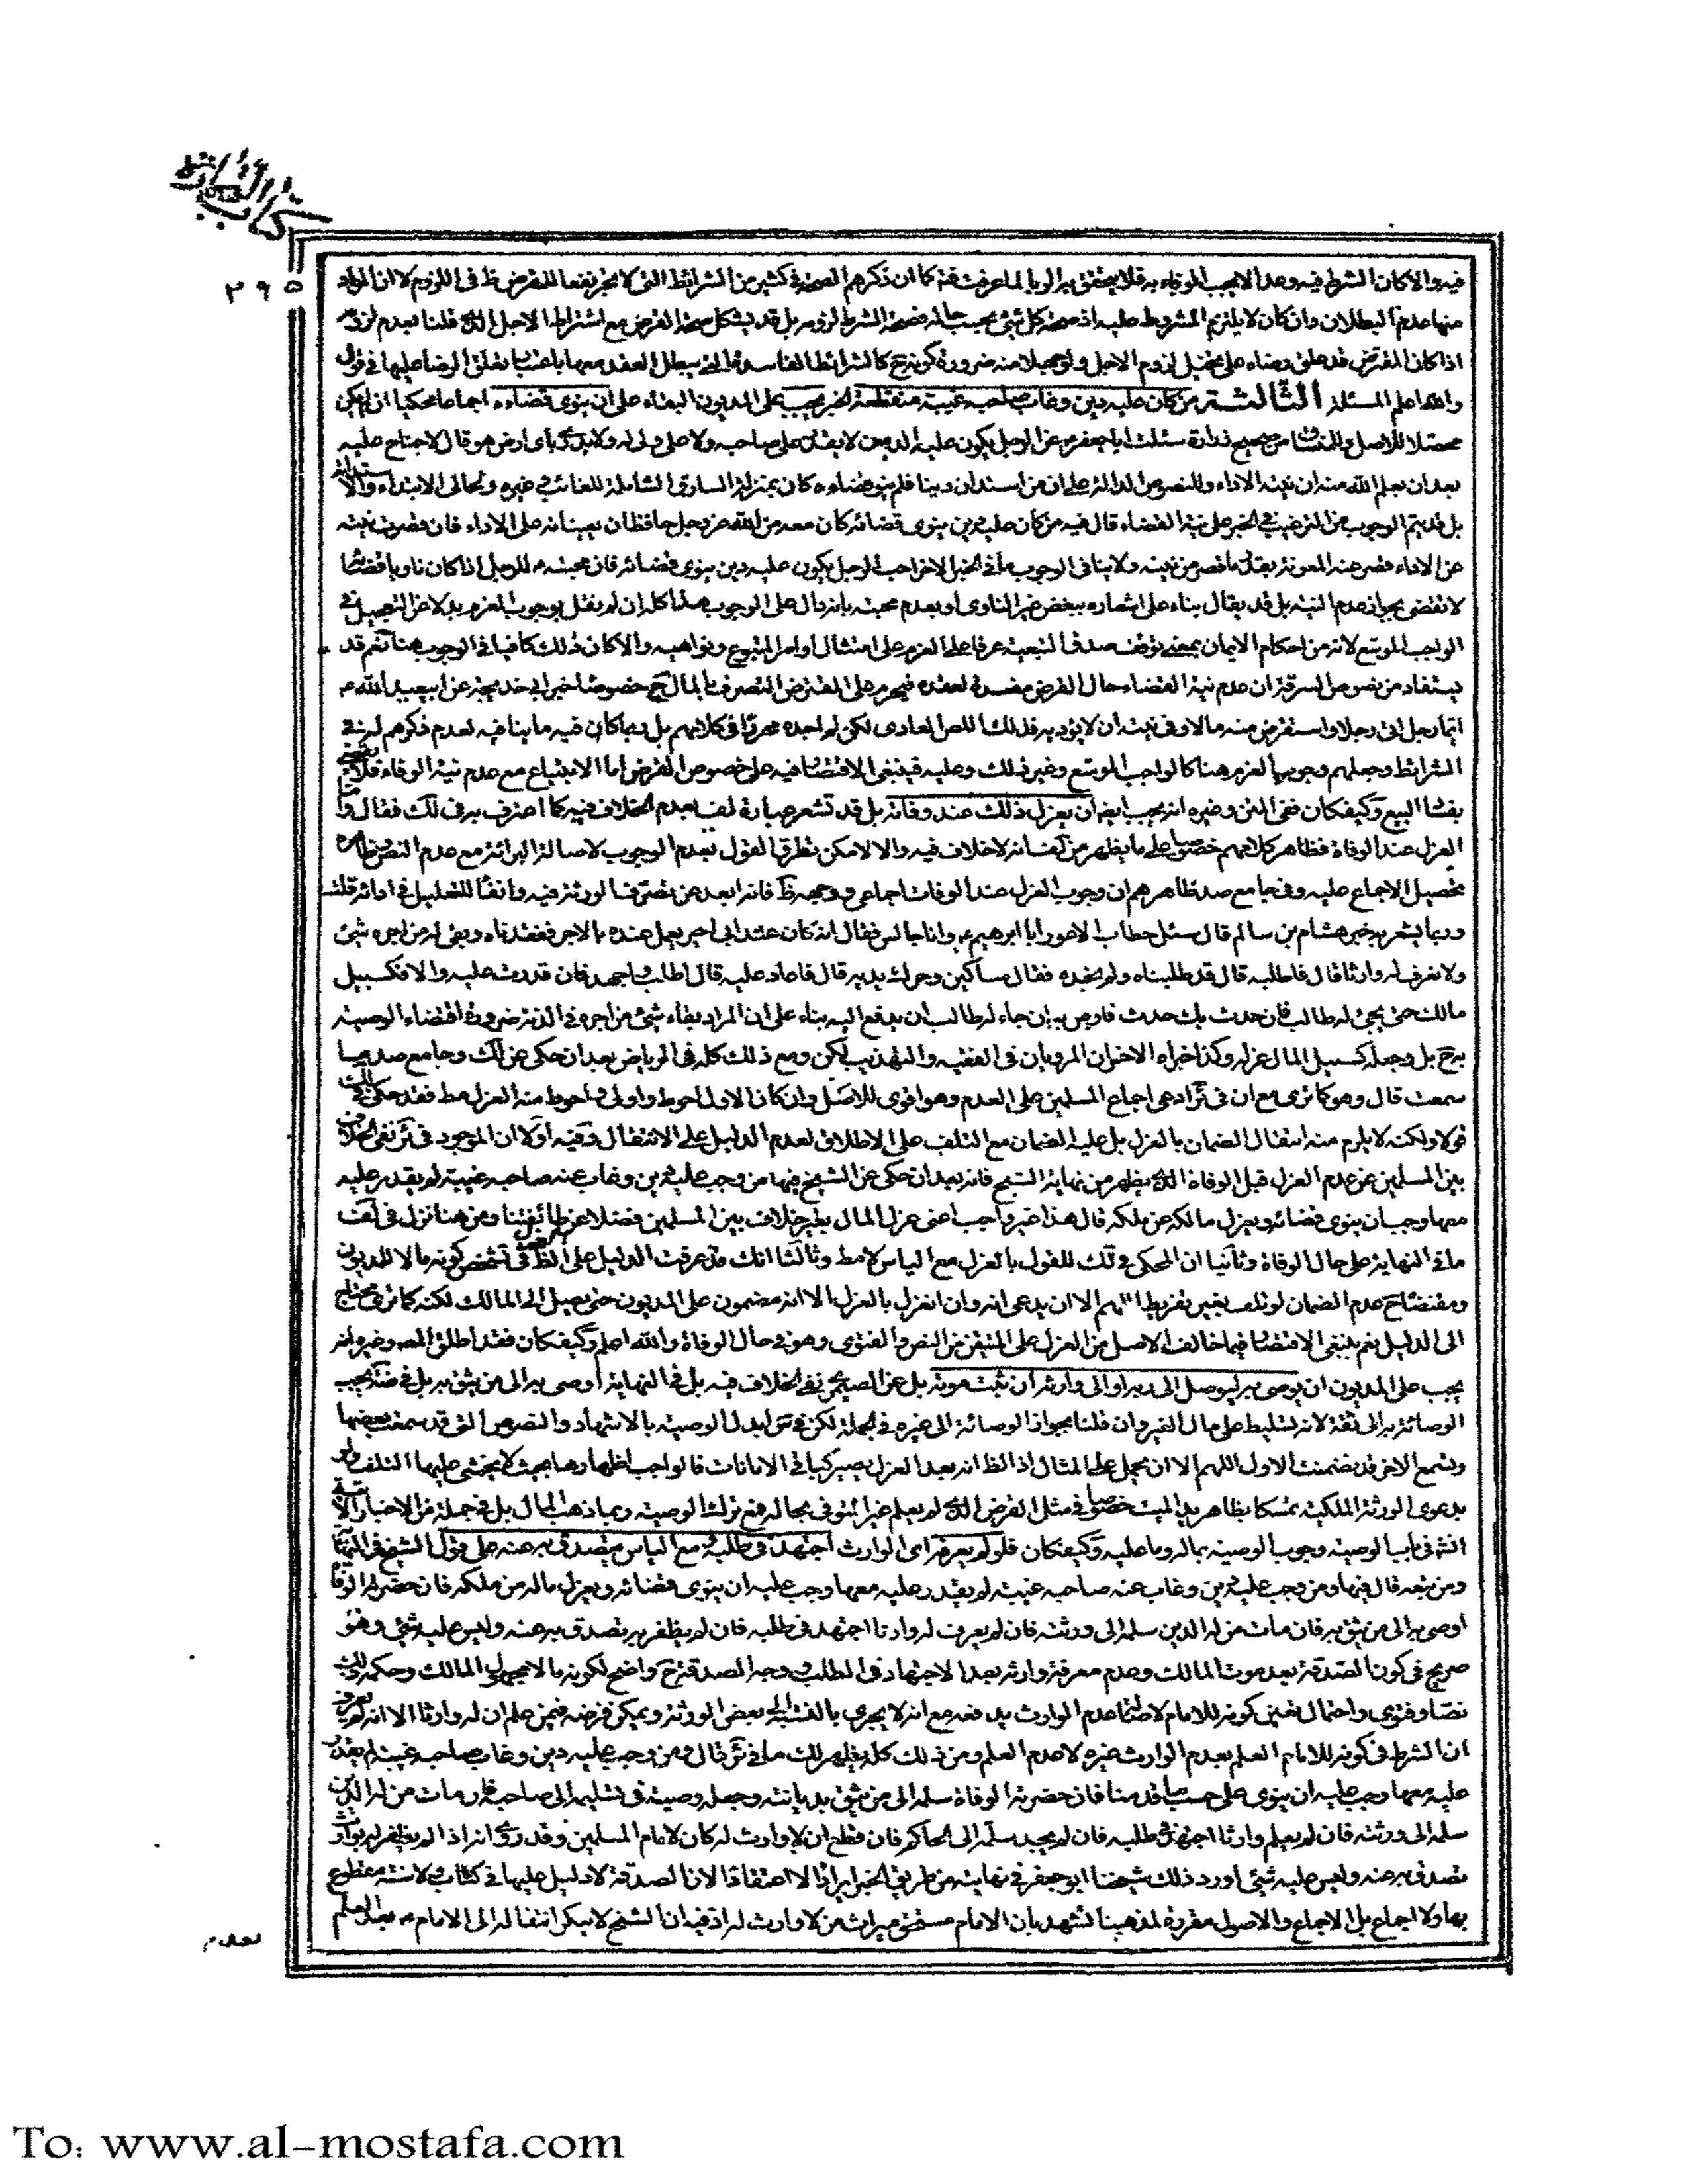 كتاب التجارة
٢٩٥
فيه والا كان الشرط فيه وعد الا يجب الوفاء به فلا يتحقق به الربا لما عرفت فت كما ان ذكرهم الصحة في كثير من الشرائط التي لا تجر نفعا للمقرض ظ في اللزوم لا ان المراد
منها عدم البطلان وان كان لا يلزم المشروط عليه اذ صحة كل شئ بحسب حاله فصحة الشرط لزومه بل قد يشكل صحة القرض مع اشتراط الاجل الذى قلنا بعدم لزومه
اذا كان المقرض قد علق رضاه على تخيل لزوم الاجل ولو جهلا منه ضرورة كونه ح كالشرائط الفاسدة التي يبطل العقد معها باعتبار تعلق الرضا عليها في قول
والله اعلم المسئلة الثالثة من كان عليه دين وغاب صاحبه غيبة منقطعة الخبر يجب على المديون البقاء على ان ينوى قضاءه اجماعا محكيا ان لم يكن
محصلا للاصل وللمستفاد من صحيح زرارة سئلت ابا جعفر ع عن الرجل يكون عليه الدين لا يقدر على صاحبه ولا على ولى له ولا يدرى باى ارض هو قال لا جناح عليه
بعد ان يعلم الله منه ان نيته الاداء وللنصوص الدالة على ان من استدان دينا فلم ينو قضاءه كان بمنزلة السارق الشاملة للغائب وغيره ولحالى الابتداء والاستدامة
بل قد يتم الوجوب من الترغيب في الخبر على نية القضاء قال فيه من كان عليه دين ينوى قضائه كان معه من الله عز وجل حافظان يعينانه على الاداء فان قصرت نيته
عن الاداء قصر عنه المعونة بقدر ما قصر من نيته ولا ينافى الوجوب ما في الخبر الاخر احب الرجل يكون عليه دين ينوى قضائه فان محبته للرجل اذا كان ناويا قضائه
لا تقضى بجواز عدم النية بل قد يقال بناء على اشعاره ببغض غير الناوى او بعدم محبته بانه دال على الوجوب هذا كله ان لم نقل بوجوب العزم بدلا عن التعجيل في
الواجب الموسع لانه من احكام الايمان بمعنى توقف صدق التبعية عرفا على العزم على امتثال اوامر المتبوع ونواهيه والا كان ذلك كافيا في الوجوب هنا نعم قد
يستفاد من نصوص السرقة ان عدم نية القضاء حال القرض مفسدة لعقده فيحرم على المقترض التصرف بالمال ح خصوصا خبر ابى خديجة عن ابيعبد الله ع
ايما رجل اتى رجلا واستقرض منه مالا وفى نيته ان لا يؤديه فذلك اللص العادى لكن لم اجده محررا في كلامهم بل ربما كان فيه ما ينافيه لعدم ذكرهم له في
الشرائط وجعلهم وجوب العزم هنا كالواجب الموسع وغير ذلك وعليه فينبغى الاقتصار فيه على خصوص القرض اما الابتياع مع عدم نية الوفاء فلا يقتضى
بفساد البيع وكيفكان ففى المتن وغيره انه يجب ايضا ان يعزل ذلك عند وفاته بل قد تشعر عبارة لف بعدم الخلاف فيه كما اعترف به في لك فقال واما
العزل عند الوفاة فظاهر كلامهم خصوصا على ما يظهر من لف انه لا خلاف فيه والا لامكن تطرق القول بعدم الوجوب لاصالة البرائة مع عدم النص وظاهره
تحصيل الاجماع عليه وفى جامع صد ظاهرهم ان وجوب العزل عند الوفات اجماعى ووجهه ظ فانه ابعد عن تصرف الورثة فيه وانفا للتعليل في ادائه قلت
وربما يشعر به خبر هشام بن سالم قال سئل حطاب الاعور ابا ابرهيم ع وانا جالس فقال انه كان عند ابى اجير يعمل عنده بالاجر ففقدناه وبقى له من اجره شئ
ولا نعرف له وارثا قال فاطلبه قال قد طلبناه ولم نجده فقال مساكين وحرك يديه قال فاعاد عليه قال اطلب واجهد فان قدرت عليه والا فكسبيل
مالك حتى يجئ له طالب فان حدث بك حدث فاوص به ان جاء له طالب ان يدفع اليه بناء على ان المراد بقاء شئ من اجره في الذمة ضرورة اقتضاء الوصية
به ح بل وجعله كسبيل المال عزله وكذا خبراه الاخران المرويان في الفقيه والتهذيب لكن ومع ذلك كله في الرياض بعد ان حكى عن لك وجامع صد ما
سمعت قال وهو كما ترى مع ان في ئر ادعى اجماع المسلمين على العدم وهو اقوى للاصل وان كان الاول احوط واولى واحوط منه العزل مط فقد حكى في لك
قولا ولكنه لا يلزم منه انتقال الضمان بالعزل بل عليه الضمان مع التلف على الاطلاق لعدم الدليل على الانتقال وفيه اولا ان الموجود في ئر نفى الخلاف
بين المسلمين عن عدم العزل قبل الوفاة الذى يظهر من نهاية الشيخ فانه بعد ان حكى عن الشيخ فيها من وجب عليه دين وغاب عنه صاحبه غيبة لم يقدر عليه
معها وجب ان ينوى قضائه ويعزل مالكه عن ملكه قال هذا غير واجب اعنى عزل المال بغير خلاف بين المسلمين فضلا عن طائفتنا ومن هنا نزل في لف
ما في النهاية على حال الوفاة وثانيا ان المحكى في لك للقول بالعزل مع الياس لا مط وثالثا انك قد عرفت الدليل على الظ في تشخص كونه مالا للمديون
ومقتضاه ح عدم الضمان لو تلف بغير تفريط اللهم الا ان يدعى انه وان انعزل بالعزل الا انه مضمون على المديون حتى يصل الى المالك لكنه كما ترى محتاج
الى الدليل نعم ينبغى الاقتصار فيما خالف الاصل من العزل على المتيقن من النص والفتوى وهو في حال الوفاة والله اعلم وكيفكان فقد اطلق المصـ وغيره انه
يجب على المديون ان يوصى به ليوصل الى ربه او الى وارثه ان ثبت موته بل عن الصيمرى نفى الخلاف فيه بل في النهاية اوصى به الى من يثق به بل في ضة يجب
الوصائة به الى ثقة لانه تسليط على مال الغير وان قلنا بجواز الوصائة الى غيره في الجملة لكن في س ابدل الوصية بالاشهاد والنصوص التي قد سمعت بعضها
وتسمع الاخر قد تضمنت الاول اللهم الا ان يحمل على المثال اذ الظ انه بعد العزل يصير كباقى الامانات فالواجب اظهارها بحيث لا يخشى عليها التلف ولو
بدعوى الورثة الملكية تمسكا بظاهر يد الميت خصوصا في مثل الفرض الذى لم يعلم غير المتوفى بحاله فمع ترك الوصية ربما ذهب المال بل في جملة من الاخبار الاتية
انشـ في باب الوصية وجوب الوصية بماله وما عليه وكيفكان فلو لم يعرفه اى الوارث اجتهد في طلبه و مع الياس يتصدق به عنه على قول الشيخ في النهاية
ومن تبعه قال فيها ومن وجب عليه دين وغاب عنه صاحبه غيبة لم يقدر عليه معها وجب عليه ان ينوى قضائه ويعزل ماله من ملكه فان حضرته الوفاة
اوصى به الى من يثق به فان مات من له الدين سلمه الى ورثته فان لم يعرف له وارثا اجتهد في طلبه فان لم يظفر به تصدق به عنه وليس عليه شئ وهو
صريح في كون الصدقة بعد موت المالك وعدم معرفة وارثه بعد الاجتهاد في الطلب ووجه الصدقة ح واضح لكونه مالا مجهول المالك وحكمه ذلك
نصا وفتوى واحتمال تعين كونه للامام لاصالة عدم الوارث يدفعه مع انه لا يجرى بالنسبة الى بعض الورثة ويمكن فرضه فيمن علم ان له وارثا الا انه لم يعرفه
ان الشرط في كونه للامام العلم بعدم الوارث غيره لا عدم العلم ومن ذلك كله يظهر لك ما في ئر قال ومن وجب عليه دين وغاب صاحبه غيبة لم يقدر
عليه معها وجب عليه ان ينوى على حسب ما قدمنا فان حضرته الوفاة سلمه الى من يثق بديانته وجعله وصيه في تسليمه الى صاحبه فان مات من له الدين
سلمه الى ورثته فان لم يعلم وارثا اجتهد في طلبه فان لم يجد سلمه الى الحاكم فان قطع ان لا وارث له كان لامام المسلمين وقد روى انه اذا لم يظفر له بوارث
تصدق به عنه وليس عليه شئ اورد ذلك شيخنا ابو جعفر في نهايته من طريق الخبر ايرادا لا اعتقادا لان الصدقة لا دليل عليها في كتاب ولا سنة مقطوع
بها ولا اجماع بل الاجماع والاصول مقررة لمذهبنا تشهد بان الامام مستحق ميراث من لا وارث له اذ فيه ان الشيخ لا ينكر انتقاله الى الامام ع بعد العلم
بعدم
To: www.al-mostafa.com